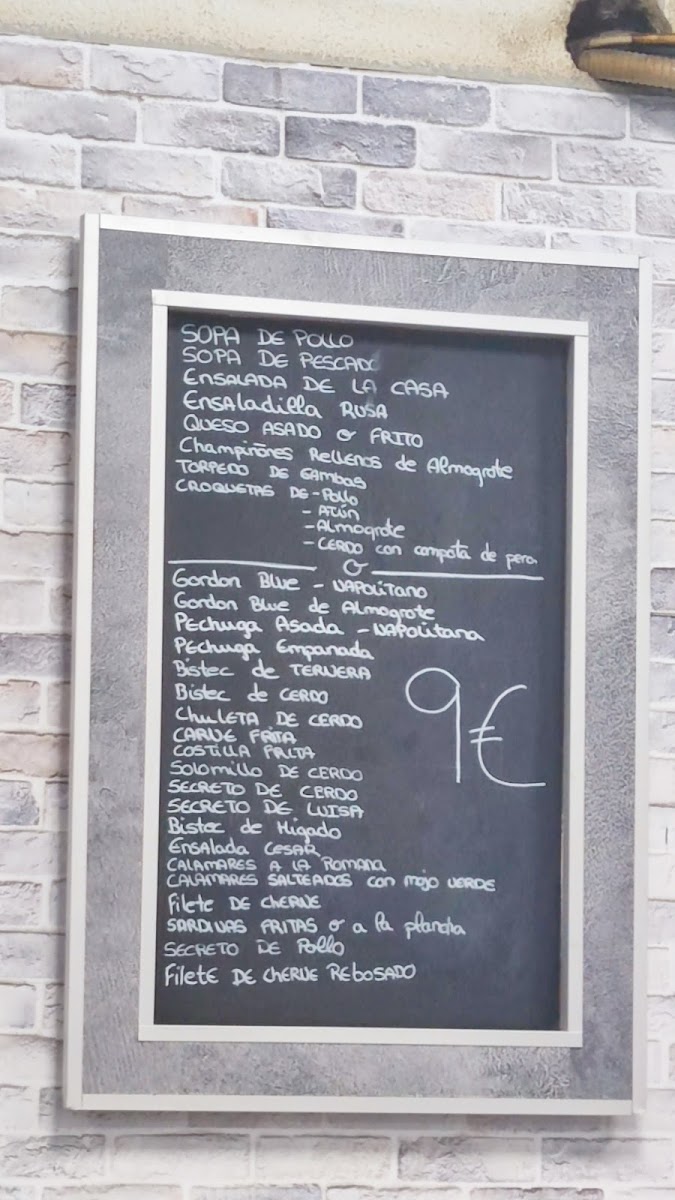 SOPA DE POLLO
SOPA DE PESCADO
ENSALADA DE LA CASA
Ensaladilla RUSA
QUESO ASADO o FRITO
Champiñones Rellenos de Almogrote
TORPEDO DE GAMBAS
CROQUETAS DE - Pollo
- ATÚN
- Almogrote
- CERDO con compota de pera
o
Gordon Blue - NAPOLITANO
Gordon Blue de Almogrote
Pechuga Asada - NAPOLITANA
Pechuga Empanada
Bistec de TERNERA
Bistec de CERDO
Chuleta DE CERDO
CARNE FRITA
COSTILLA FRITA
Solomillo DE CERDO
SECRETO DE CERDO
SECRETO DE LUISA
Bistec de Higado
Ensalada Cesar
CALAMARES A LA Romana
CALAMARES SALTEADOS con mojo VERDE
Filete DE CHERNE
SARDINAS FRITAS o a la plancha
SECRETO DE Pollo
Filete DE CHERNE REBOSADO
9€